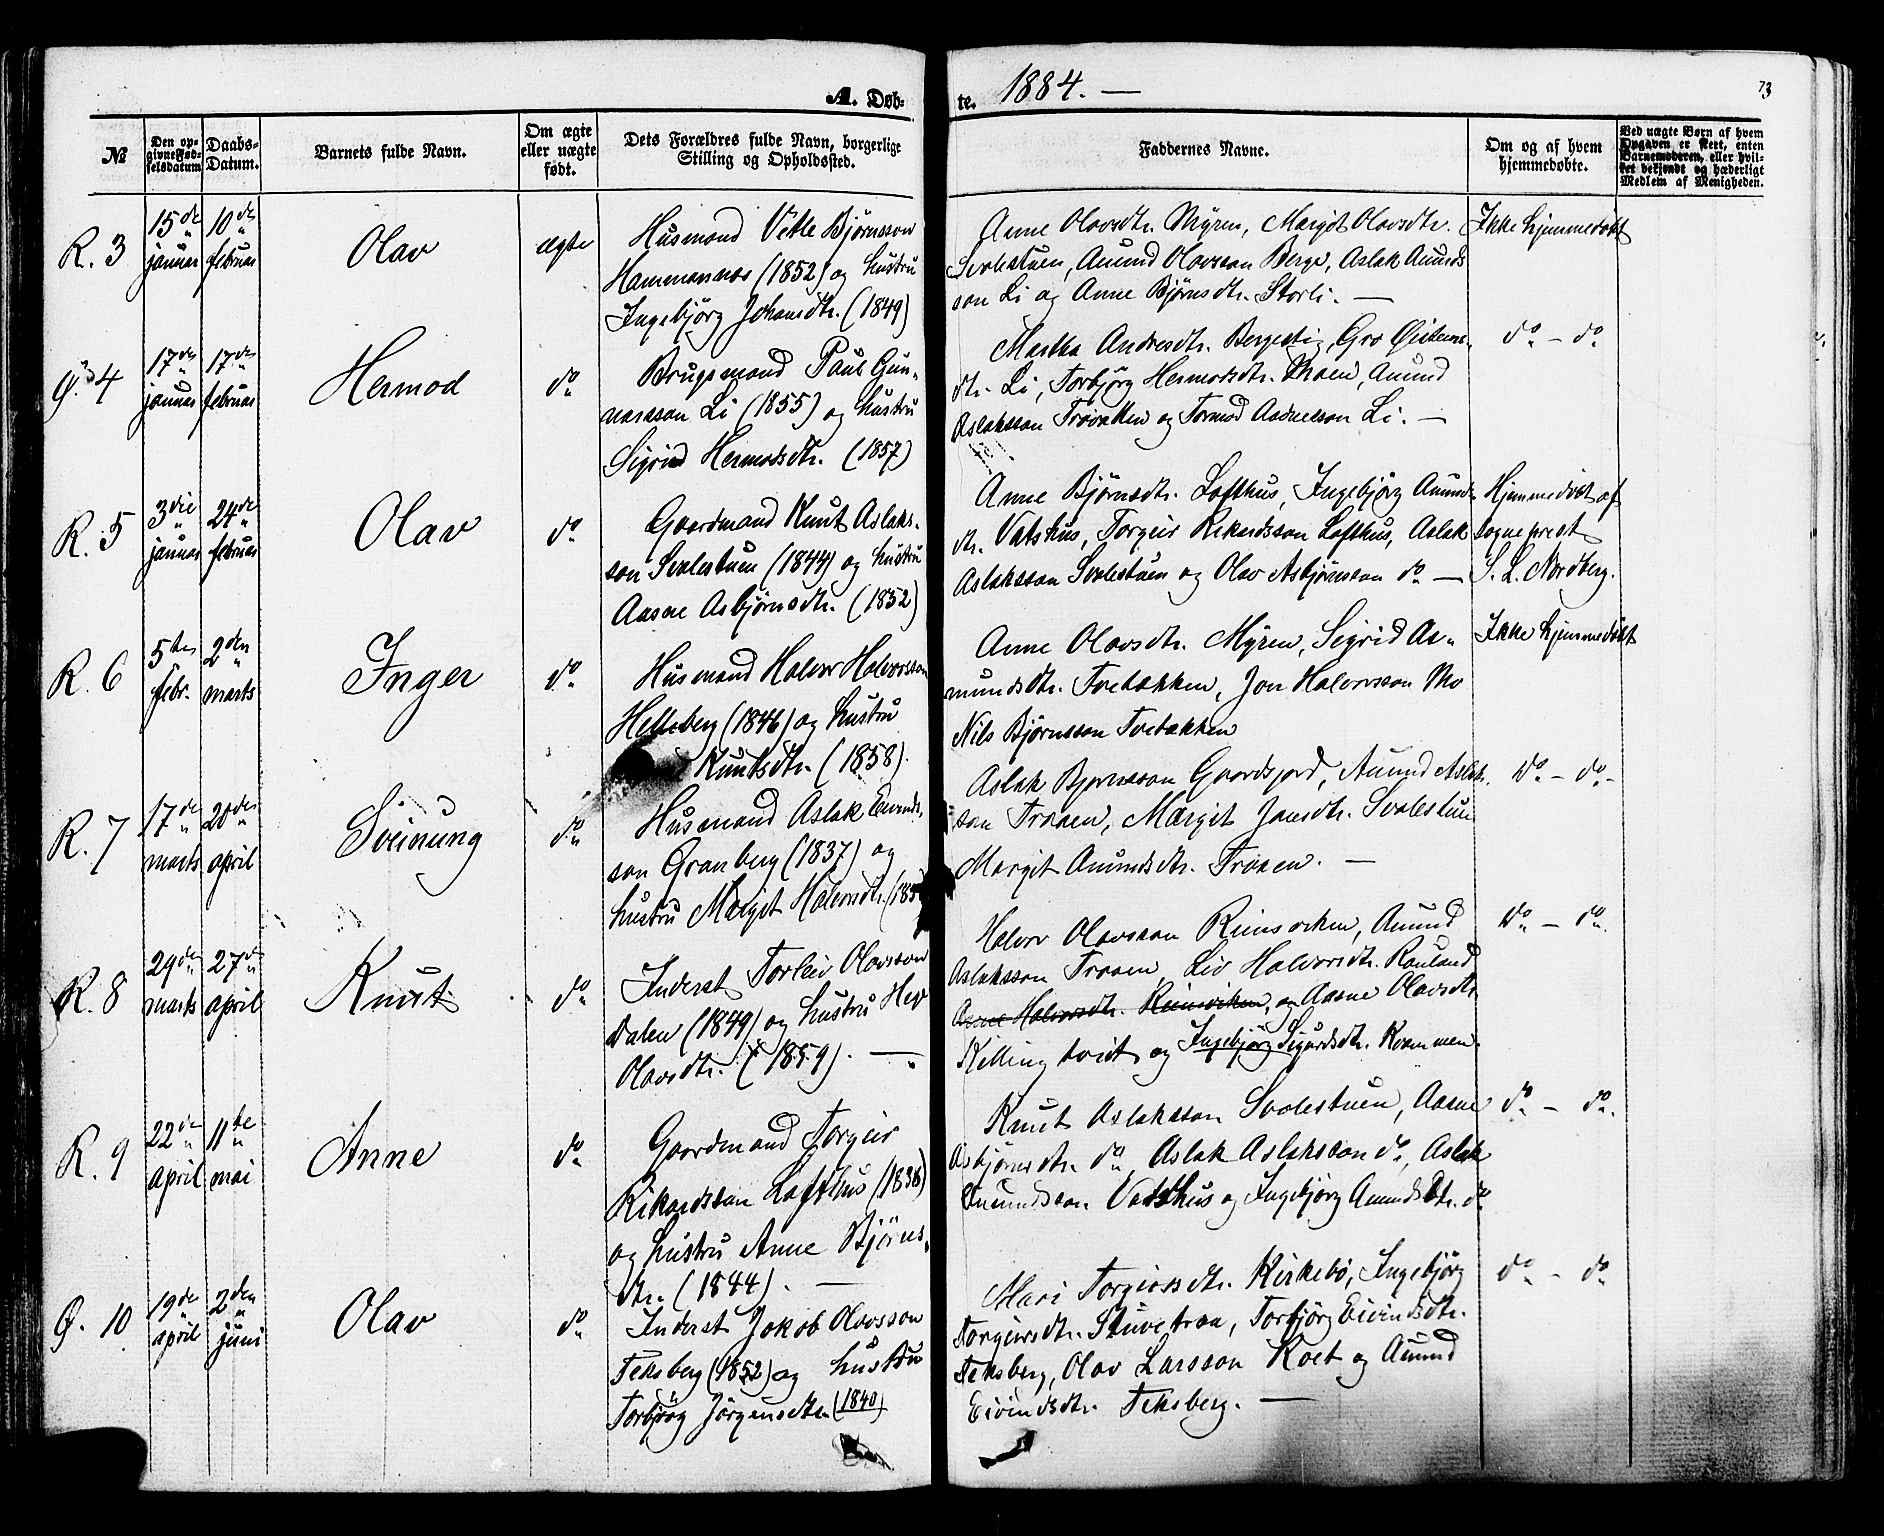 A. Døb-
te. 1884. —
73
№
Den op-
givne Fød-
selsdatum
Daabs-
Datum.
Barnets fulde Navn.
Om ægte
eller uægte
født.
Dets Forældres fulde Navn, borgerlige
Stilling og Opholdssted.
Faddernes Navne.
Om og af hvem
hjemmedøbte.
Ved uægte Børn af hvem
Opgaven er skeet, enten
Barnemoderen, eller hvil-
ket bekjendt og hæderligt
Medlem af Menigheden.
R. 3
15de
januar
10de
februar
Olav
ægte
Husmand Vetle Bjørnsson
Hammarnes (1852) og hustru
Ingebjörg Johansdtr. (1849)
Anne Olavsdtr. Myren, Margit Olavsdtr.
Svalestuen, Anund Olavsson Berge, Aslak Anunds
son Li og Anne Bjørnsdtr. Storli. —
Ikke hjemmedøbt
Ø. 4
17de
januar
17de
februar
Hermod
do
Brugsmand Paul Gun-
narsson Li (1855) og hustru
Sigrid Hermodsdtr. (1857)
Martha Andresdtr. Bergestig, Gro Øistens-
dtr. Li, Torbjörg Hermodsdtr. Moen, Anund
Aslaksson Trovatten og Tormod Aadnesson Li. —
do - do
R. 5
3die
januar
24de
februar
Olav
do
Gaardmand Knut Aslaks-
son Svalestuen (1844) og hustru
Aasne Asbjørnsdtr. (1852)
Anne Bjørnsdtr. Lofthus, Ingebjörg Anunds
dtr. Vatshus, Torgeir Rikardsson Lofthus, Aslak
Aslaksson Svalestuen og Olav Asbjørnsson do —
Hjemmedøbt af
sogneprest
S. L. Nordberg.
R. 6
5te
febr.
2den
marts
Inger
do
Husmand Halvor Halvorsson
Helleberg (1846) og hustru
Knutsdtr. (1858).
Anne Olavsdtr. Myren, Sigrid As-
mundsdtr. Tvebakken, Jon Halvorsson Mo
Nils Bjørnsson Tvebakken
Ikke hjemmedøbt
R. 7
17de
marts
20de
april
Sveinung
do
Husmand Aslak Eivinds-
son Granberg (1837) og
hustru Margit Halvorsdtr. (185
Aslak Bjørnsson Gaardsjord, Anund Aslak-
son Traaen, Margit Jonsdtr. Svalestuen
Margit Anundsdtr. Traaen. —
Do - do
R. 8
29de
marts
27de
april
Knut
do
Inderst Torleiv Olavsson
Dalen (1849) og hustru Hæge
Olavsdtr. (1859). —
Halvor Olavsson Reinsviken, Anund
Aslaksson Traaen, Liv Halvorsdtr. Rauland
Aasne Halvorsdtr. Reinsviken, og Aasne Olavsdtr.
Killingtveit og Ingebjörg Sigurdsdtr. Kvammen.
Do - do
R. 9
22de
april
11te
mai
Anne
do
Gaardmand Torgeir
Rikardsson Lofthus (1838)
og hustru Anne Bjørns-
dtr. (1844). —
Knut Aslaksson Svalestuen, Aasne
Asbjørnsdtr. do, Aslak Aslaksson do, Aslak
Anundsson Vatshus og Ingebjörg Anundsdtr. do
do - do
Ø. 10
19de
april
2den
juni
Olav
do
Inderst Jakob Olavsson
Feksberg (1852) og hustru
Torbjörg Jörgensdtr. (1840)
Mari Torgeirsdtr. Kirkebö, Ingebjörg
Torgeirsdtr. Stuvetraa, Torbjörg Eivindsdtr.
Feksberg, Olav Larsson Kvet og Anund
Eivindsdtr. Feksberg. —
do - do